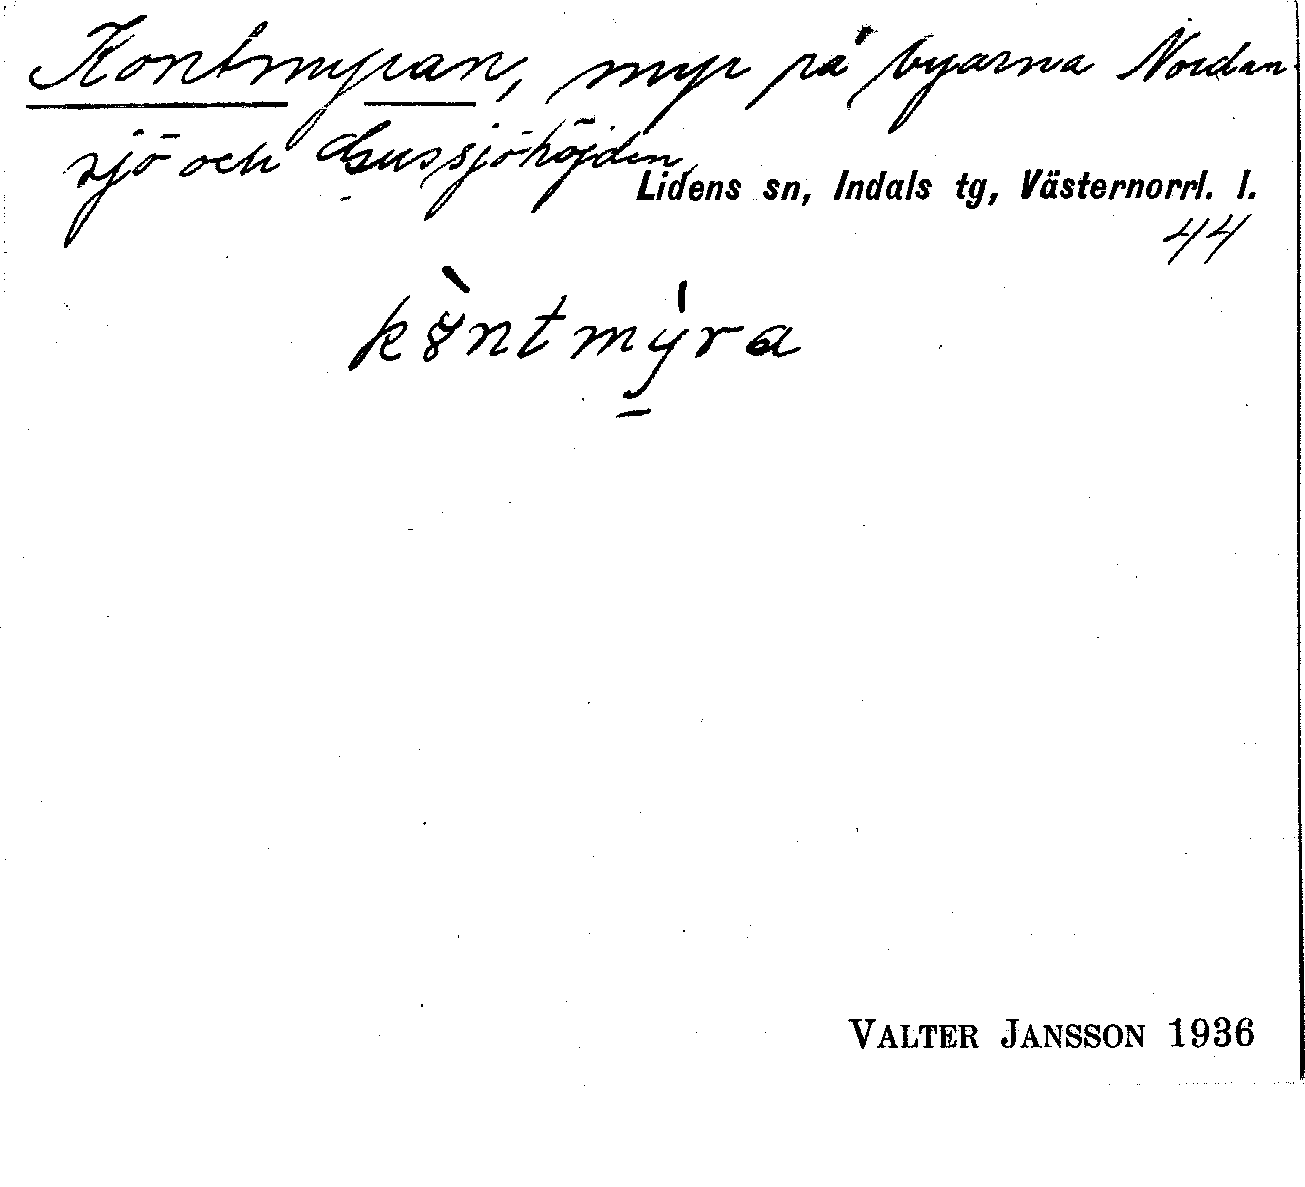 Kontmyran, myr på byarna Nordan-
sjö och Gussjöhöjden
Lidens sn, Indals tg, Västernorrl. l.
44
VALTER JANSSON 1936